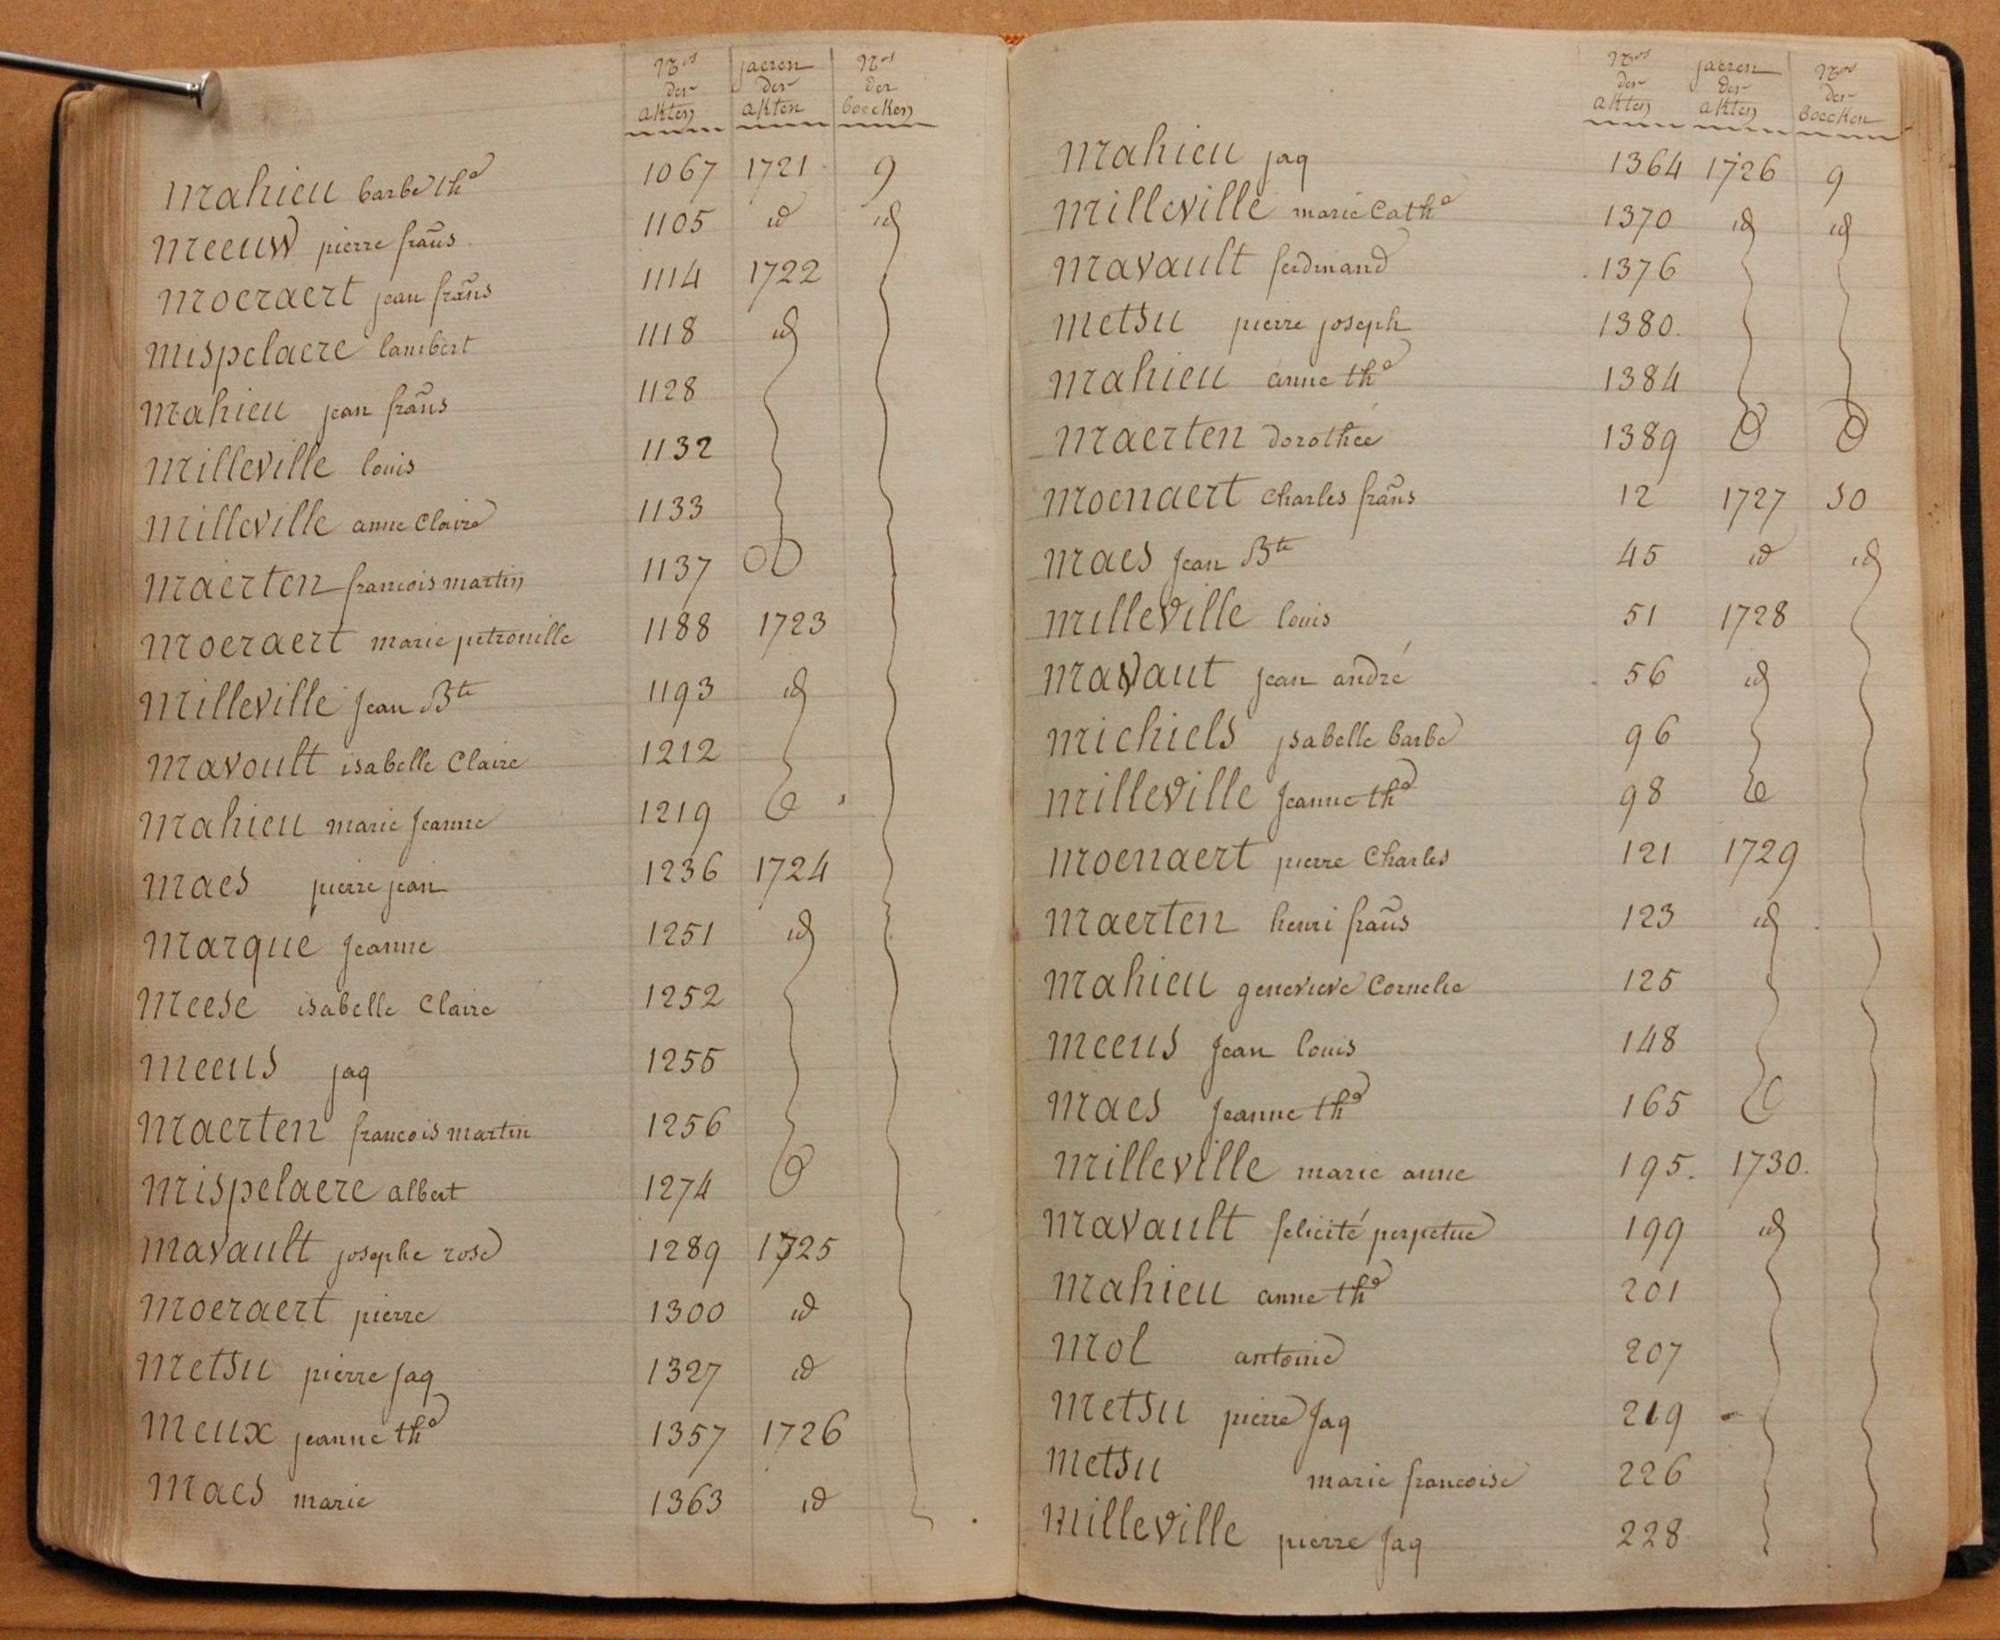 Nos der akten jaeren der akten Nos der boecken
Mahieu barbe tha 1067 1721 9
Meeuw pierre frans 1105 id id
Moeraert jean frans 1114 1722
Mispelaere lambert 1118 id
Mahieu jean frans 1128
Milleville louis 1132
Milleville anne Claire 1133
Maerten francois martin 1137
Moeraert marie petronille 1188 1723
Milleville Jean Bte 1193 id
Mavoult isabelle Claire 1212
Mahieu marie Jeanne 1219
Maes pierre jean 1236 1724
Marque Jeanne 1251 id
Meese isabelle Claire 1252
Meeus jaq 1255
Maerten francois martin 1256
Mispelaere albert 1274
Mavault josephe rose 1289 1725
Moeraert pierre 1300 id
Metsu pierre Jaq 1327 id
Meux jeanne tha 1357 1726
Maes marie 1363 id
Nos der akten jaeren der akten Nos der boecken
Mahieu jaq 1364 1726 9
Milleville marie Catha 1370 id id
Mavault ferdinand 1376
Metsu pierre joseph 1380.
Mahieu anne tha 1384
Maerten dorothée 1389
Moenaert Charles frans 12 1727 10
Maes Jean Bte 45 id id
Milleville louis 51 1728
Mavaut jean andré 56 id
Michiels ysabelle barbe 96
Milleville Jeanne tha 98
Moenaert pierre Charles 121 1729
Maerten henri frans 123 id
Mahieu genevieve Cornelie 125
Meeus Jean louis 148
Maes Jeanne tha 165
Milleville marie anne 195. 1730.
Mavault felicité perpetue 199 id
Mahieu anne tha 201
Mol antoine 207
Metsu pierre Jaq 219
Metsu marie francoise 226
Milleville pierre Jaq 228